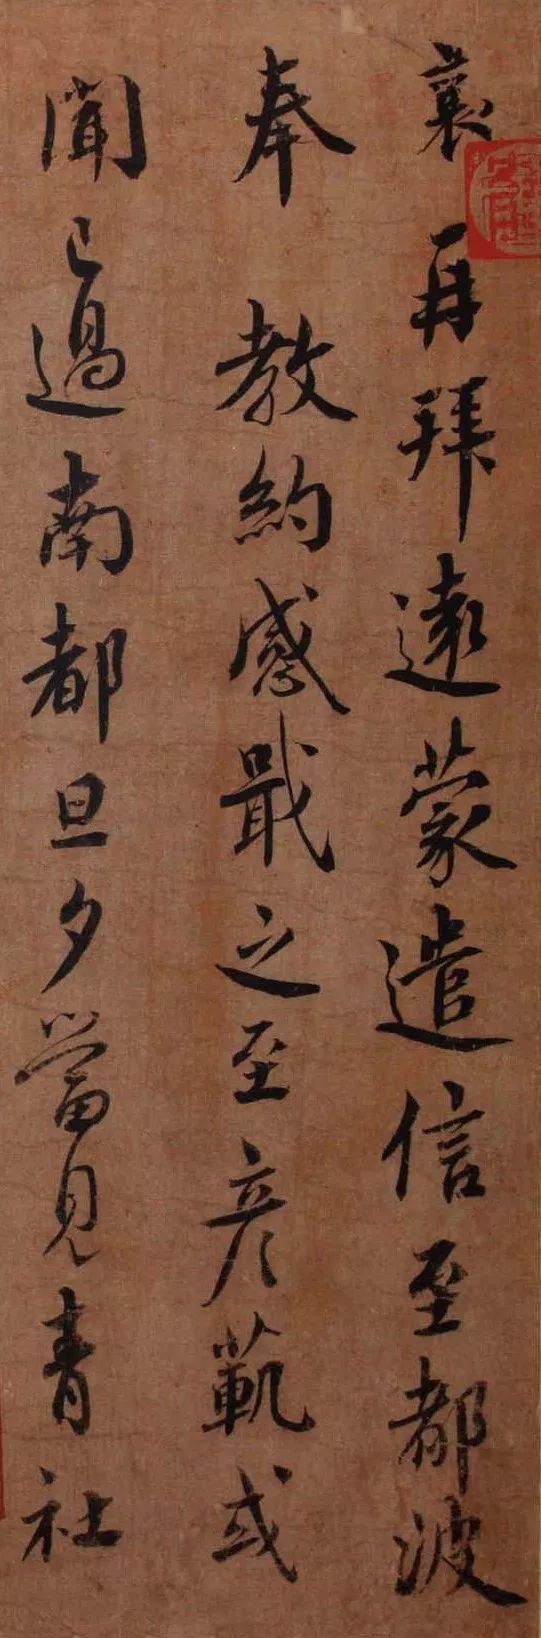 襄再拜遠蒙遣信至都波
奉教約感戢之至彦範或
聞已過南都旦夕當見青社